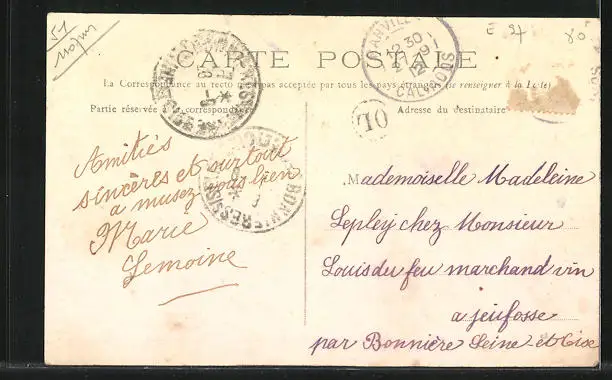 51
E 27
80
CARTE POSTALE
La Correspondance au recto n'est pas acceptée par tous les pays étrangers (se renseigner à la Poste)
Partie réservée à la correspondance
Adresse du destinataire
12 30
12
CALVADOS
OL
Amitiés
sincères et surtout
a musez vous bien
Marie
Lemoine
Mademoiselle Madeleine
Lepley chez Monsieur
Louis du feu marchand vin
a jeufosse
par Bonnière Seine et Oise